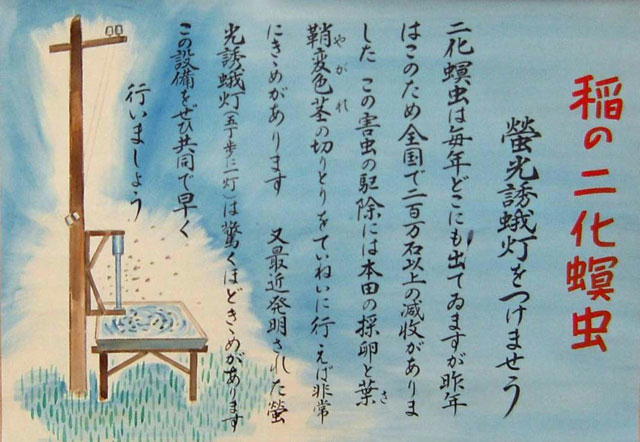 稲の二化螟虫
螢光誘蛾灯をつけませう
二化螟虫は毎年どこにも出てゐますが昨年
はこのため全国で二百万石以上の減收がありま
した この害虫の駆除には本田の採卵と葉さ
鞘変色茎の切りとりをていねいに行えば非常
やがれ
にきゝめがあります 又最近発明された螢
光誘蛾灯(五丁歩に一灯)は驚くほどきゝめがあります
この設備をぜひ共同で早く
行いましょう